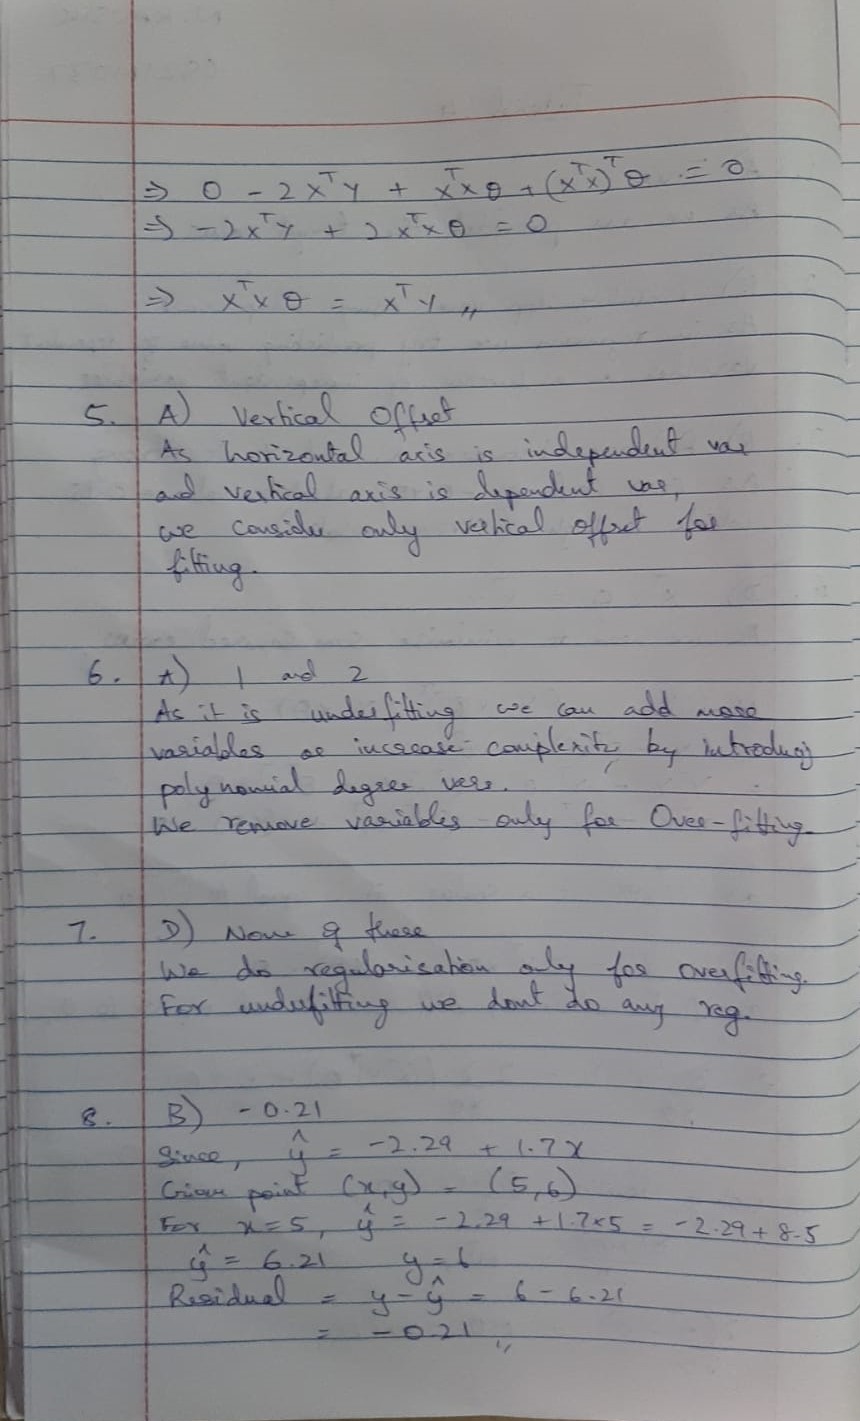 ⇒ 0 - 2XᵀY + XᵀXθ + (XᵀX)ᵀθ = 0
⇒ -2XᵀY + 2XᵀXθ = 0
⇒ XᵀXθ = XᵀY
5. A) Vertical Offset
As horizontal axis is independent var
and vertical axis is dependent var,
we consider only vertical offset for
fitting.
6. A) 1 and 2
As it is underfitting we can add more
variables or increase complexity by introducing
polynomial degree vars.
We remove variables only for Over-fitting
7. D) None of these
We do regularisation only for overfitting.
For underfitting we dont do any reg.
8. B) -0.21
Since, ŷ = -2.29 + 1.7x
Given point (x,y) = (5,6)
For x=5, ŷ = -2.29 + 1.7×5 = -2.29 + 8.5
ŷ = 6.21 y=6
Residual = y - ŷ = 6 - 6.21
= -0.21